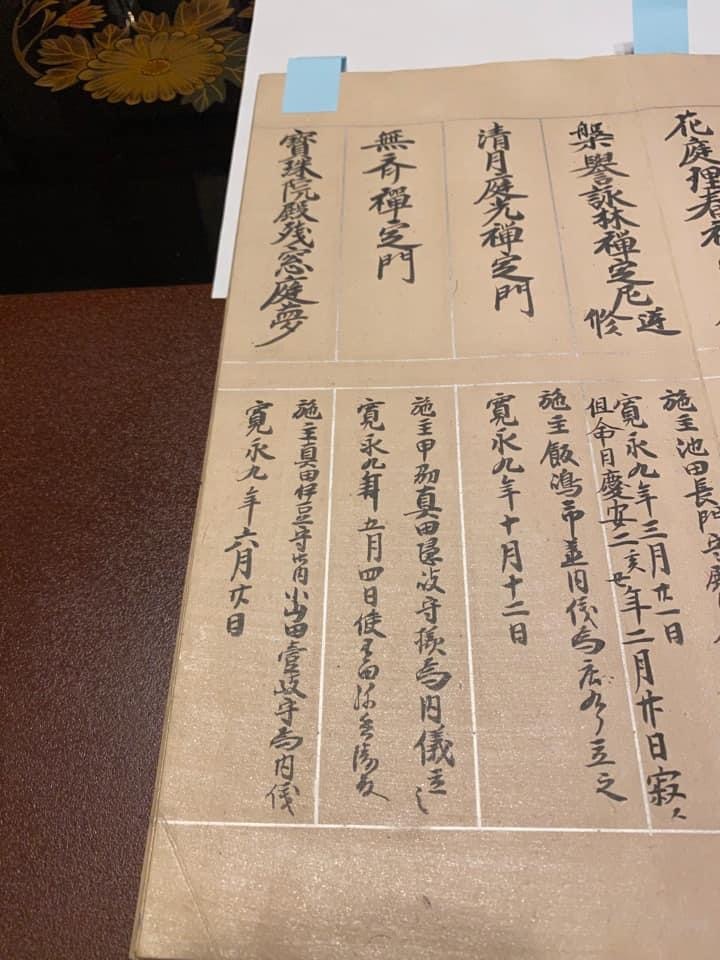 花庭理春禅
施主池田長門守殿
槃誉詠林禅定尼
逆修
寛永九年三月廿一日
但命日慶安二亥年二月廿日寂
清月庭光禅定門
施主飯嶋市益内儀為立之
寛永九年十月十二日
無斉禅定門
施主甲刕真田隠岐守様為内儀立之
寛永九年五月四日使
寶珠院殿残窓庭夢
施主真田伊豆守内小山田壹岐守為内儀
寛永九年六月廿日